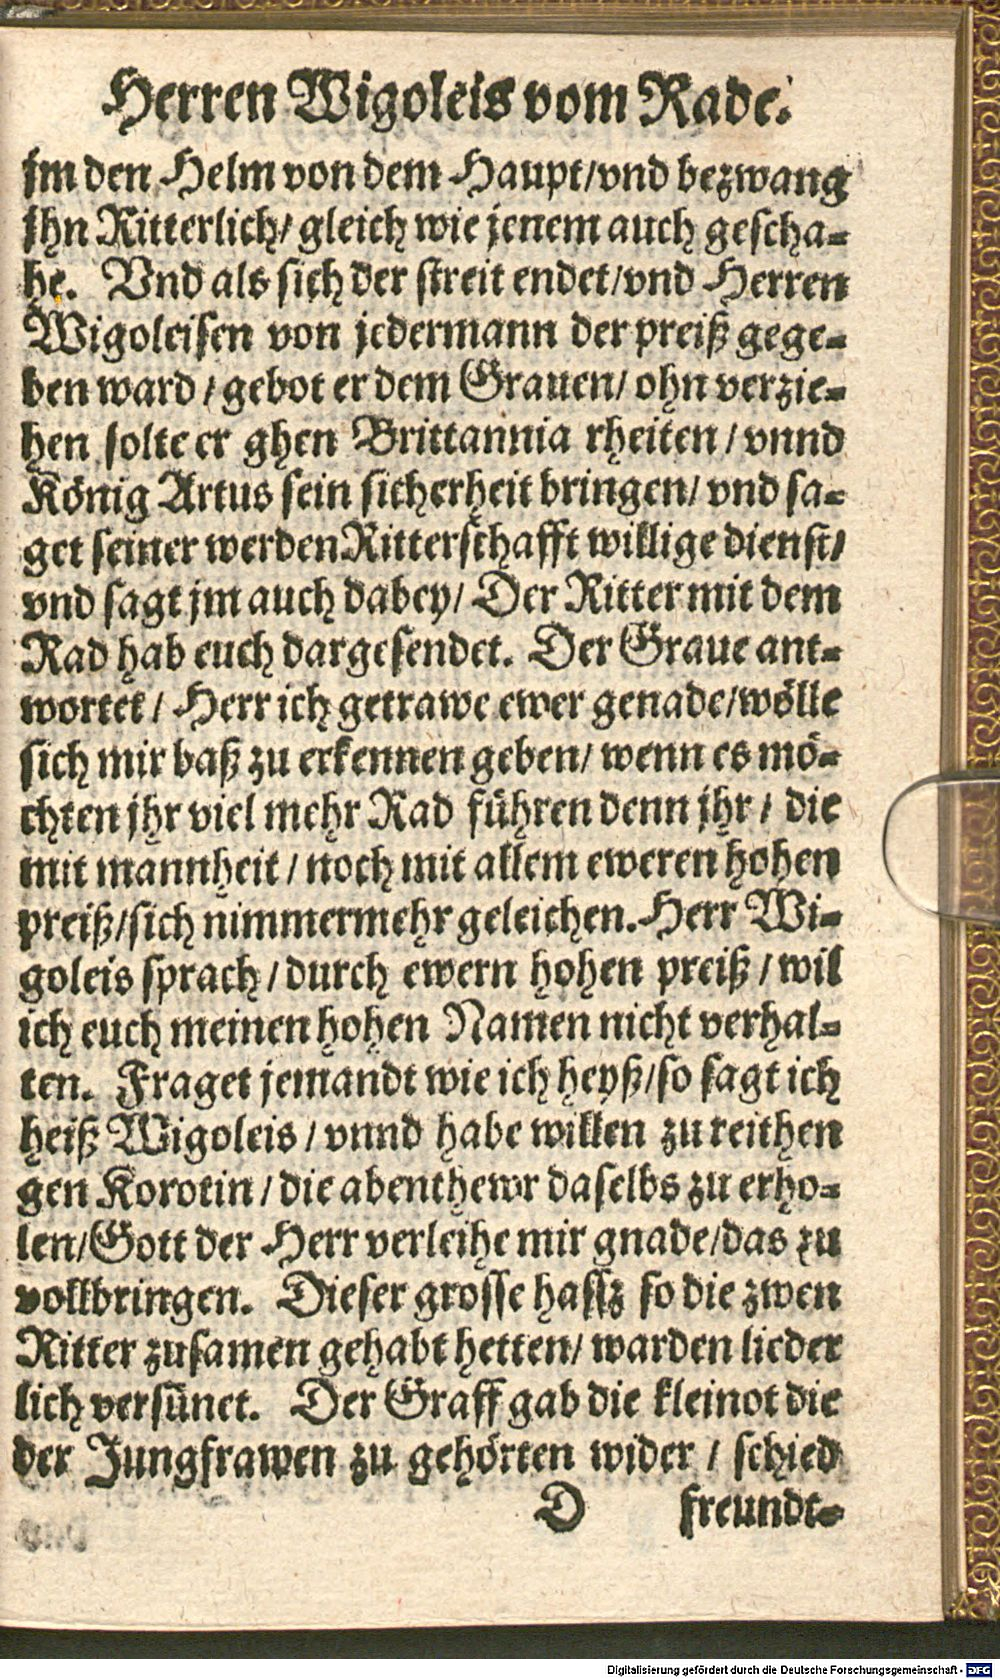 Herren Wigoleis vom Rade.
jm den Helm von dem Haupt/vnd bezwang
jhn Ritterlich/ gleich wie jenem auch gescha-
he. Vnd als sich der streit endet/vnd Herren
Wigoleisen von jedermann der preiß gege-
ben ward / gebot er dem Grauen/ ohn verzie-
hen solte er ghen Brittannia rheiten / vnnd
König Artus sein sicherheit bringen/ vnd sa-
get seiner werden Ritterschafft willige dienst/
vnd sagt jm auch dabey/ Der Ritter mit dem
Rad hab euch dargesendet. Der Graue ant-
wortet / Herr ich getrawe ewer genade/wölle
sich mir baß zu erkennen geben/ wenn es mö-
chten jhr viel mehr Rad führen denn jhr / die
mit mannheit / noch mit allem eweren hohen
preiß/sich nimmermehr geleichen. Herr Wi-
goleis sprach / durch ewern hohen preiß / wil
ich euch meinen hohen Namen nicht verhal-
ten. Fraget jemandt wie ich heyß/so sagt ich
heiß Wigoleis / vnnd habe willen zu reithen
gen Korotin / die abenthewr daselbs zu erho-
len/Gott der Herr verleihe mir gnade/das zu
vollbringen. Dieser grosse hassz so die zwen
Ritter zusamen gehabt hetten/ warden lieder
lich versünet. Der Graff gab die kleinot die
der Jungfrawen zu gehörten wider / schied
D freundt-
Digitalisierung gefördert durch die Deutsche Forschungsgemeinschaft - DFG